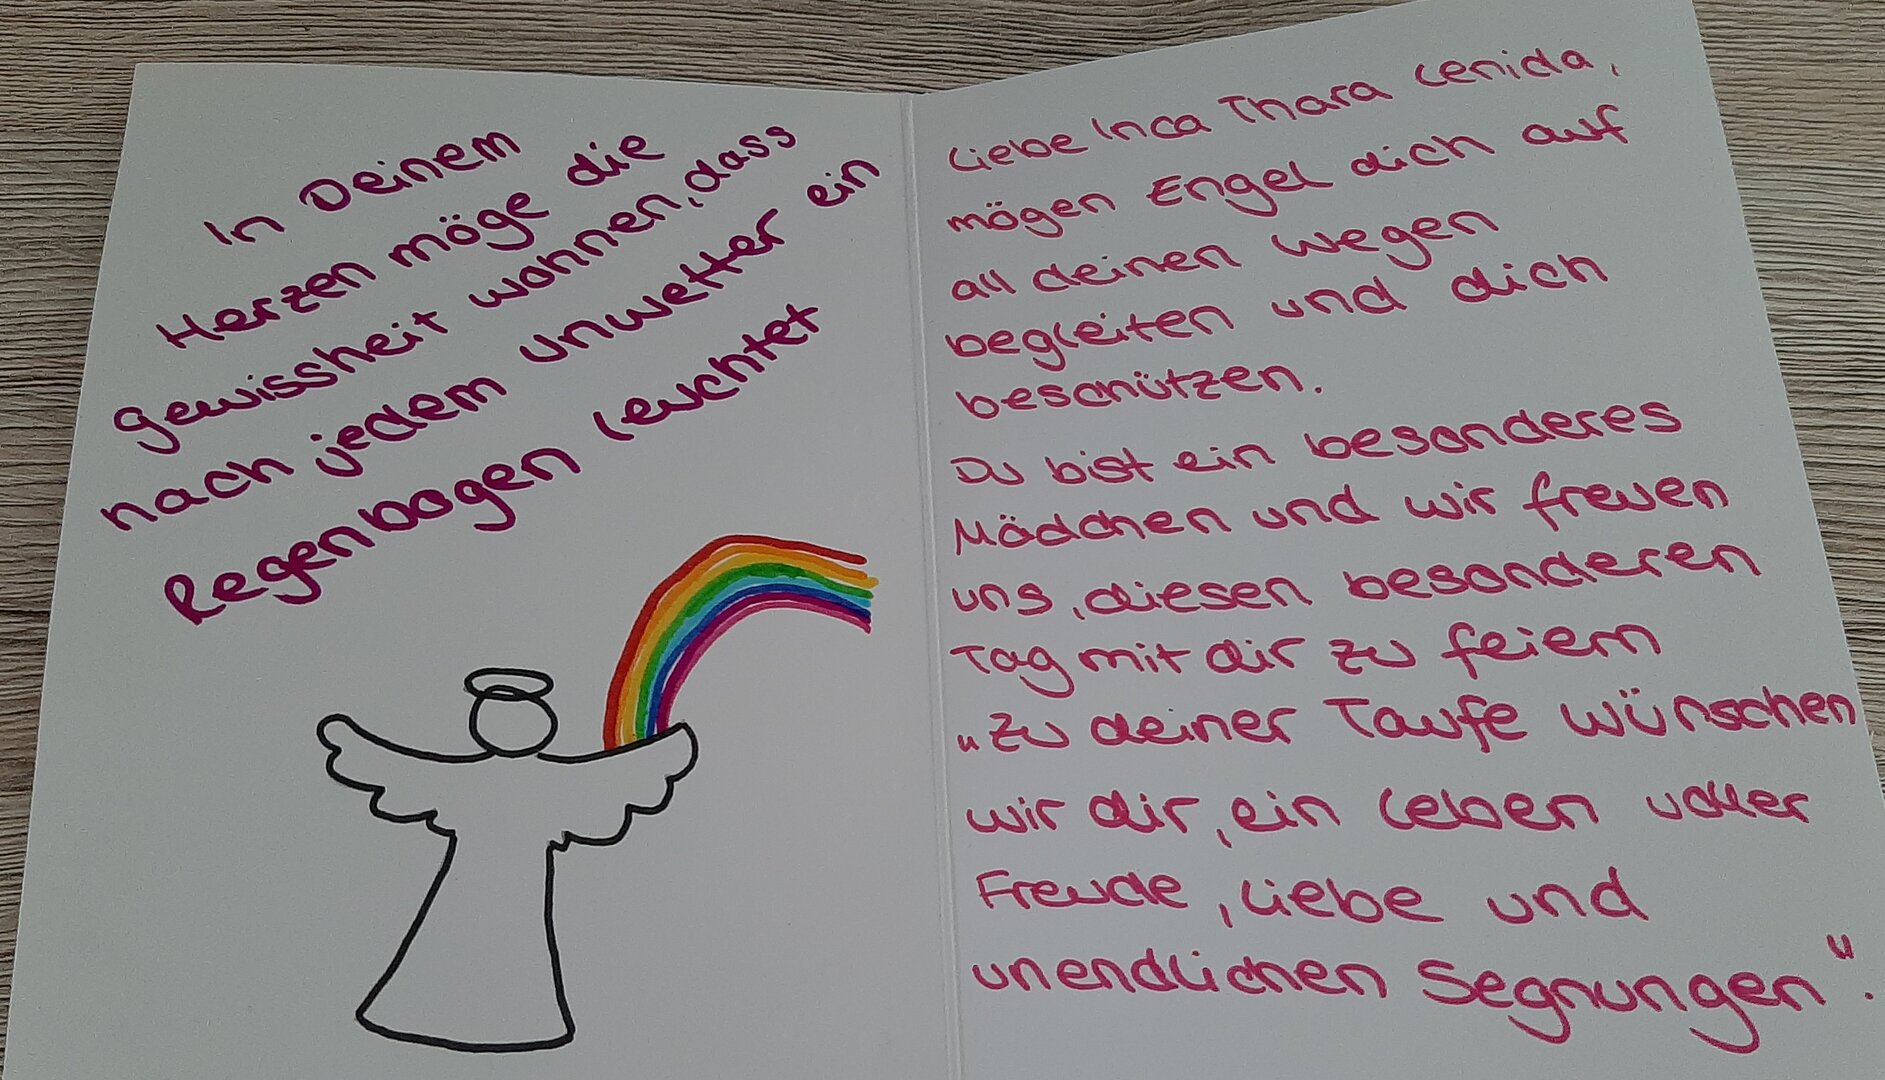 In Deinem
Herzen möge die
Gewissheit wohnen, dass
nach jedem Unwetter ein
Regenbogen leuchtet
Liebe Inca Thara Lenida,
mögen Engel dich auf
all deinen Wegen
begleiten und dich
beschützen.
Du bist ein besonderes
Mädchen und wir freuen
uns, diesen besonderen
Tag mit dir zu feiern
„Zu deiner Taufe wünschen
wir dir, ein Leben voller
Freude, Liebe und
unendlichen Segnungen".